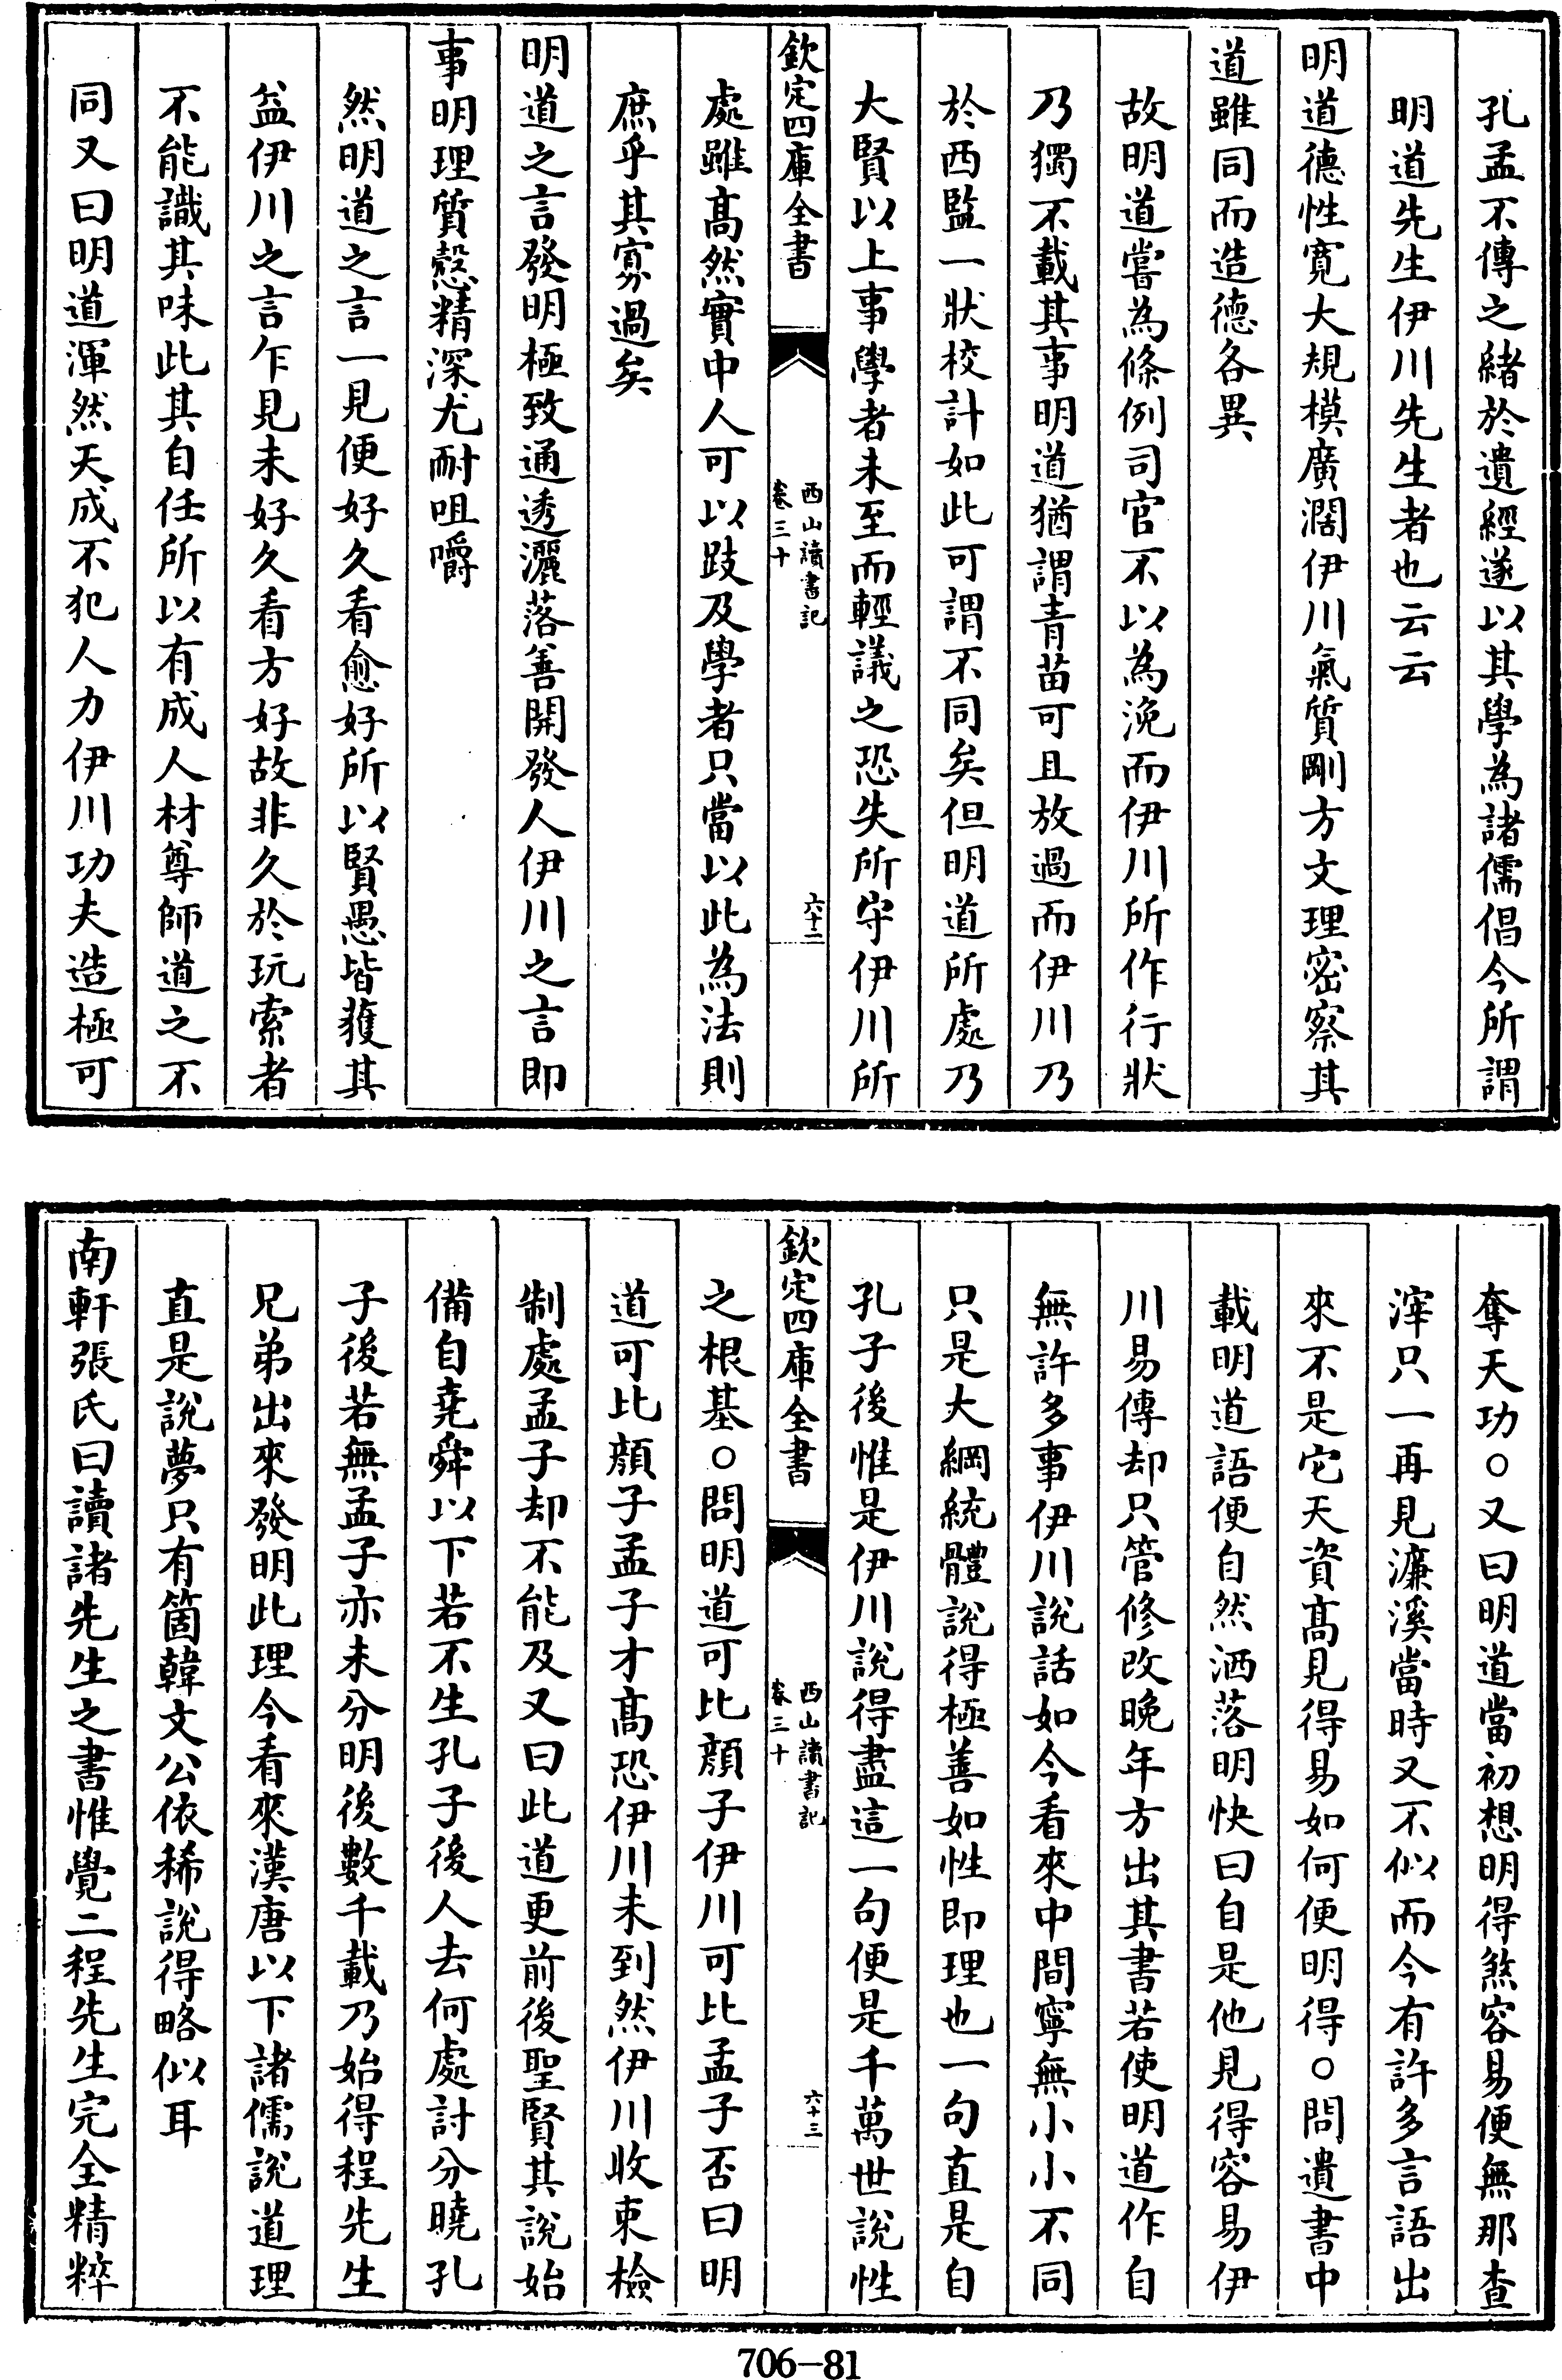 孔孟不傳之緒於遺經遂以其學為諸儒倡今所謂
明道先生伊川先生者也云云
明道德性寛大規模廣濶伊川氣質剛方文理宻察其
道雖同而造德各異
故明道嘗為條例司官不以為浼而伊川所作行狀
乃獨不載其事明道猶謂青苗可且放過而伊川乃
於西監一狀校計如此可謂不同矣但明道所處乃
大賢以上事學者未至而輕議之恐失所守伊川所
欽定四庫全書
西山讀書記
卷三十
六十二
處雖髙然實中人可以跂及學者只當以此為法則
庶乎其寡過矣
明道之言發明極致通透灑落善開發人伊川之言即
事明理質慤精深尤耐咀嚼
然明道之言一見便好久看愈好所以賢愚皆獲其
益伊川之言乍見未好久看方好故非久於玩索者
不能識其味此其自任所以有成人材尊師道之不
同又曰明道渾然天成不犯人力伊川功夫造極可
奪天功○又曰明道當初想明得煞容易便無那查
滓只一再見濂溪當時又不似而今有許多言語出
來不是它天資髙見得易如何便明得○問遺書中
載明道語便自然洒落明快曰自是他見得容易伊
川易傳却只管修改晚年方出其書若使明道作自
無許多事伊川說話如今看來中間寧無小小不同
只是大綱統體說得極善如性即理也一句直是自
孔子後惟是伊川說得盡這一句便是千萬世說性
欽定四庫全書
西山讀書記
卷三十
六十三
之根基○問明道可比顔子伊川可比孟子否曰明
道可比顔子孟子才髙恐伊川未到然伊川收束檢
制處孟子却不能及又曰此道更前後聖賢其說始
備自堯舜以下若不生孔子後人去何處討分曉孔
子後若無孟子亦未分明後數千載乃始得程先生
兄弟出來發明此理今看來漢唐以下諸儒說道理
直是說夢只有箇韓文公依稀說得略似耳
南軒張氏曰讀諸先生之書惟覺二程先生完全精粹
706-81